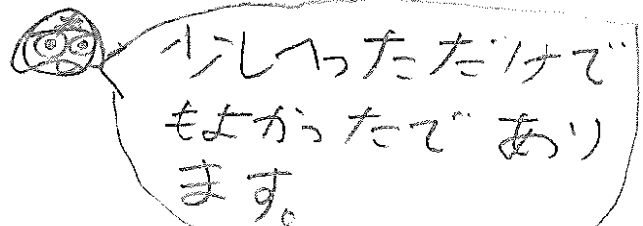 少しへっただけで
もよかったであり
ます。